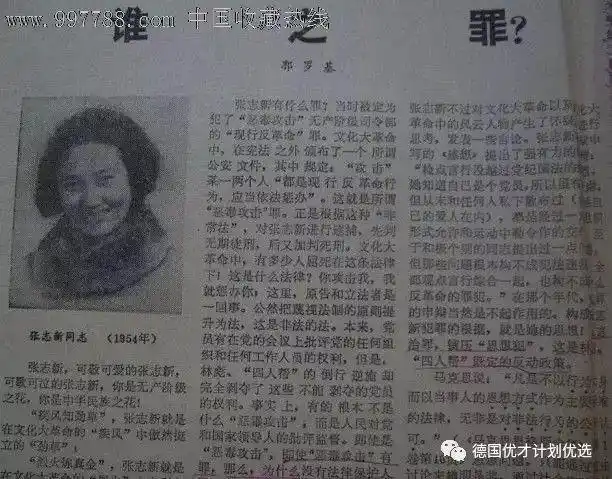 www.997788.com 中国收藏热线
谁之罪?
郭罗基
张志新同志 (1954年)
张志新,可敬可爱的张志新,
可歌可泣的张志新,你是无产阶级
之花,你是中华民族之花!
“疾风知劲草”,张志新就是
在文化大革命的“疾风”中傲然挺
立的“劲草”;
“烈火炼真金”,张志新就是
张志新有什么罪?当时被定为
犯了“恶毒攻击”无产阶级司令部
的“现行反革命”罪。文化大革命
中,在宪法之外颁布了一个所谓
公安文件,其中规定:“攻击”
某一两个人“都是现行反革命行
为,应当依法惩办”。这就是所谓
“恶毒攻击”罪。正是根据这种“非
常法”,对张志新进行逮捕,先判
无期徒刑,后又加判死刑。文化大
革命中,有多少人屈死在这条法律
下!这是什么法律?你攻击我,我
就惩办你;这里,原告和立法者是
一回事。公然把蔑视法制的原则提
升为法,这是非法的法。本来,党
员有在党的会议上批评党的任何组
织和任何工作人员的权利,但是,
林彪、“四人帮”的倒行逆施却
完全剥夺了这些不能剥夺的党员
的权利。事实上,有的根本不是
什么“恶毒攻击”,而是人民对党
和国家领导人的批评监督。即使是
“恶毒攻击”,即使“恶毒攻击”有
罪,那么,为什么没有法律保护人
张志新不过对文化大革命以及
革命中的风云人物产生了怀疑
思考,发表一些看法。张志新
写的《感想》提出了强有力的
她知道自己是个党员,所以
但从未和任何人私下散布过
己的爱人在内)
形式允许和运动中勒令的
于和极个别的同志提出过一点
但那些问题根本构不成犯法
部观点言行综合一起,也构不成
反革命的罪犯。”在那个年代,
的申辩当然是不起作用的。构成
新犯罪的根据,就是她的思想!
治罪,镇压“思想犯”,这是
“四人帮”既定的反动政策。
马克思说:“凡是不以行为
而以当事人的思想方式作为主
的法律,无非是对非法行为的
德国优才计划优选